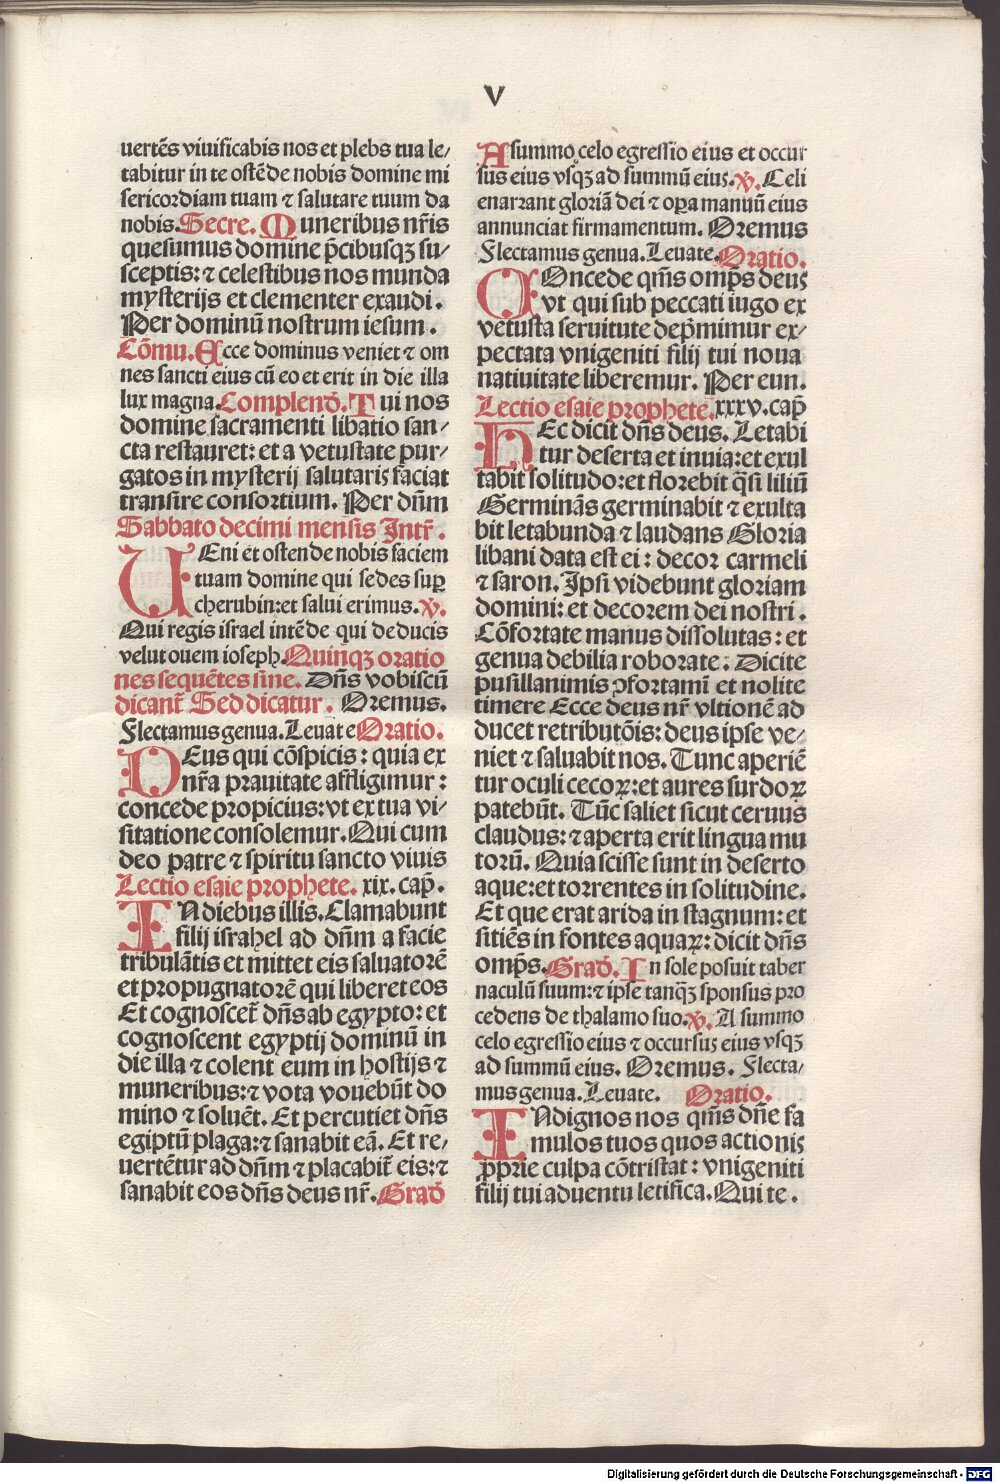 V
uertēs viuificabis nos et plebs tua le/
tabitur in te ostēde nobis domine mi
sericordiam tuam ⁊ salutare tuum da
nobis. Secre. Muneribus nr̄is
quesumus domine p̄cibusqꝫ su/
sceptis: ⁊ celestibus nos munda
mysterijs et clementer exaudi.
Per dominū nostrum iesum.
Cōmu. Ecce dominus veniet ⁊ om
nes sancti eius cū eo et erit in die illa
lux magna. Complend̄. Tui nos
domine sacramenti libatio san/
cta restauret: et a vetustate pur/
gatos in mysterij salutaris faciat
transire consortium. Per dn̄m
Sabbato decimi mensis Intr̄.
VEni et ostende nobis faciem
tuam domine qui sedes suꝑ
cherubin: et salui erimus. ℣.
Qui regis israel intēde qui deducis
velut ouem ioseph. Quinqꝫ oratio
nes sequētes sine. Dn̄s vobiscū
dicant̄ Sed dicatur. Oremus.
Flectamus genua. Leuate Oratio.
DEus qui cōspicis: quia ex
nr̄a prauitate affligimur:
concede propicius: vt ex tua vi/
sitatione consolemur. Qui cum
deo patre ⁊ spiritu sancto viuis
Lectio esaie prophete. xix. cap̄.
IN diebus illis. Clamabunt
filij israhel ad dn̄m a facie
tribulātis et mittet eis saluatorē
et propugnatorē qui liberet eos
Et cognoscet̄ dn̄s ab egypto: et
cognoscent egyptij dominū in
die illa ⁊ colent eum in hostijs ⁊
muneribus: ⁊ vota vouebūt do
mino ⁊ soluēt. Et percutiet dn̄s
egiptū plaga: ⁊ sanabit eā. Et re/
uertētur ad dn̄m ⁊ placabit̄ eis: ⁊
sanabit eos dn̄s deus nr̄. Grad̄
A summo celo egressio eius et occur
sus eius vsqꝫ ad summū eius. ℣. Celi
enarrant gloriā dei ⁊ oꝑa manuū eius
annunciat firmamentum. Oremus
Flectamus genua. Leuate. Oratio.
COncede qm̄s omp̄s deus
vt qui sub peccati iugo ex
vetusta seruitute dep̄mimur ex/
pectata vnigeniti filij tui noua
natiuitate liberemur. Per eun.
Lectio esaie prophete. xxxv. cap̄
HEc dicit dn̄s deus. Letabi
tur deserta et inuia: et exul
tabit solitudo: et florebit q̄si liliū
Germinās germinabit ⁊ exulta
bit letabunda ⁊ laudans Gloria
libani data est ei: decor carmeli
⁊ saron. Ipsi videbunt gloriam
domini: et decorem dei nostri.
Cōfortate manus dissolutas: et
genua debilia roborate. Dicite
pusillanimis ꝯfortami et nolite
timere Ecce deus nr̄ vltionē ad
ducet retributōis: deus ipse ve/
niet ⁊ saluabit nos. Tunc aperiē
tur oculi cecoꝝ: et aures surdoꝝ
patebūt. Tūc saliet sicut ceruus
claudus: ⁊ aperta erit lingua mu
torū. Quia scisse sunt in deserto
aque: et torrentes in solitudine.
Et que erat arida in stagnum: et
sitiēs in fontes aquaꝝ: dicit dn̄s
omp̄s. Grad̄. In sole posuit taber
naculū suum: ⁊ ipse tanqꝫ sponsus pro
cedens de thalamo suo. ℣. A summo
celo egressio eius ⁊ occursus eius vsqꝫ
ad summū eius. Oremus. Flecta/
mus genua. Leuate. Oratio.
INdignos nos qm̄s dn̄e fa
mulos tuos quos actionis
ꝓprie culpa cōtristat: vnigeniti
filij tui aduentu letifica. Qui te.
Digitalisierung gefördert durch die Deutsche Forschungsgemeinschaft - DFG